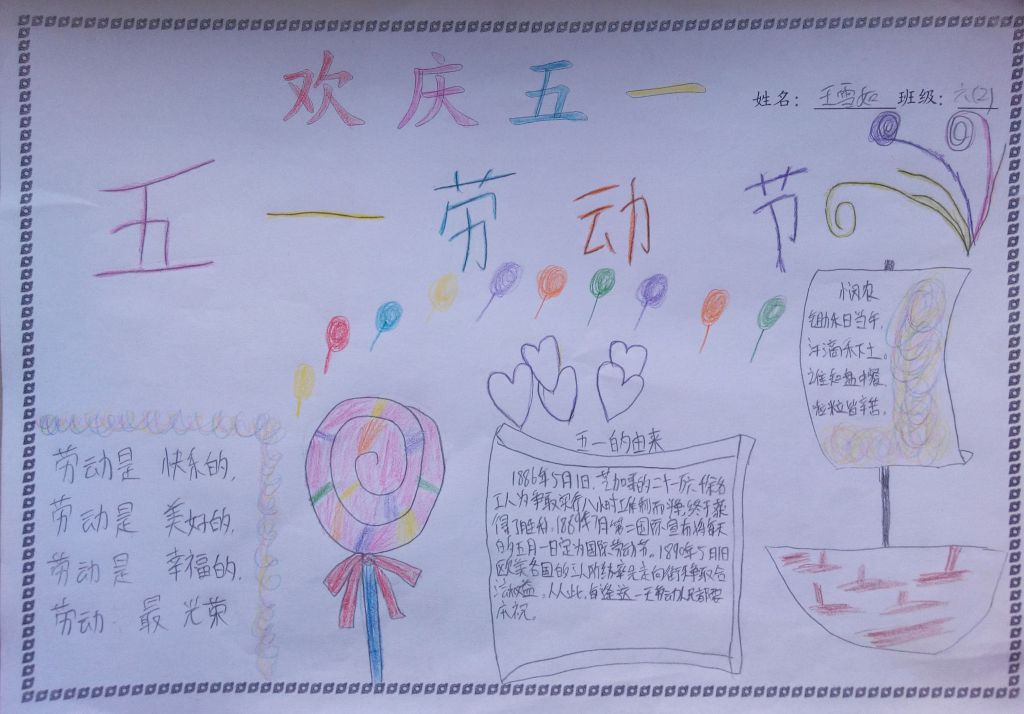 欢庆五一
姓名：王雪如 班级：六(2)
五一劳动节
悯农
锄禾日当午，
汗滴禾下土。
谁知盘中餐，
粒粒皆辛苦。
劳动是 快乐的，
劳动是 美好的，
劳动是 幸福的，
劳动 最 光荣
五一的由来
1886年5月1日，芝加哥的二十一万六千余名
工人为争取实行八小时工作制而罢工，终于获
得了胜利，1889年7月第二国际宣布将每年
的五月一日定为国际劳动节。1890年5月1日
欧美各国的工人阶级率先走向街头争取合
法权益，从此，每逢这一天劳动人民都要
庆祝。